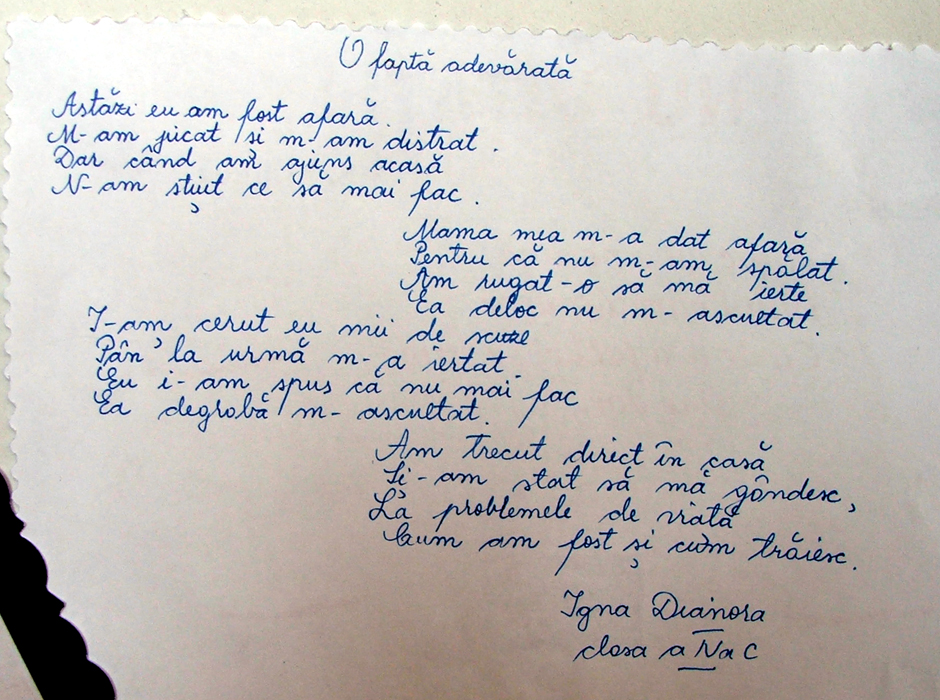 O faptă adevărată
Astăzi eu am fost afară.
M-am jucat și m-am distrat.
Dar când am ajuns acasă
N-am știut ce să mai fac.
Mama mea m-a dat afară
Pentru că nu m-am spălat.
Am rugat-o să mă ierte
Ea deloc nu m-ascultat.
I-am cerut eu mii de scuze
Pân' la urmă m-a iertat.
Eu i-am spus că nu mai fac
Ea degrobă m-ascultat.
Am trecut direct în casă
Și-am stat să mă gândesc,
La problemele de viată
Cum am fost și cum trăiesc.
Igna Dianora
clasa a V a C